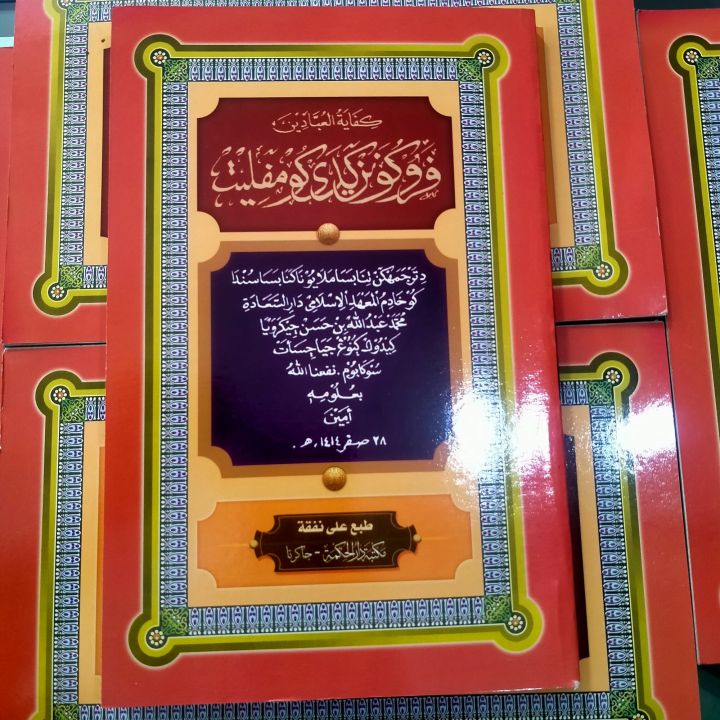 كفاية العبادين
فروكونن كيدى كومفليت
دترجمهكن تنا بسا ملايو ناكنا بسا سندا
كو خادم المعهد الإسلامي دار السعادة
محمد عبد الله بن حسن جيكرويا
كيدوك كنوغ جياجسات
سوكابوم. نفعنا الله
بعلومه
أمين
٢٨ صفر ١٤١٤ هـ.
طبع على نفقة
مكتبة دار الحكمة - جاكرتا